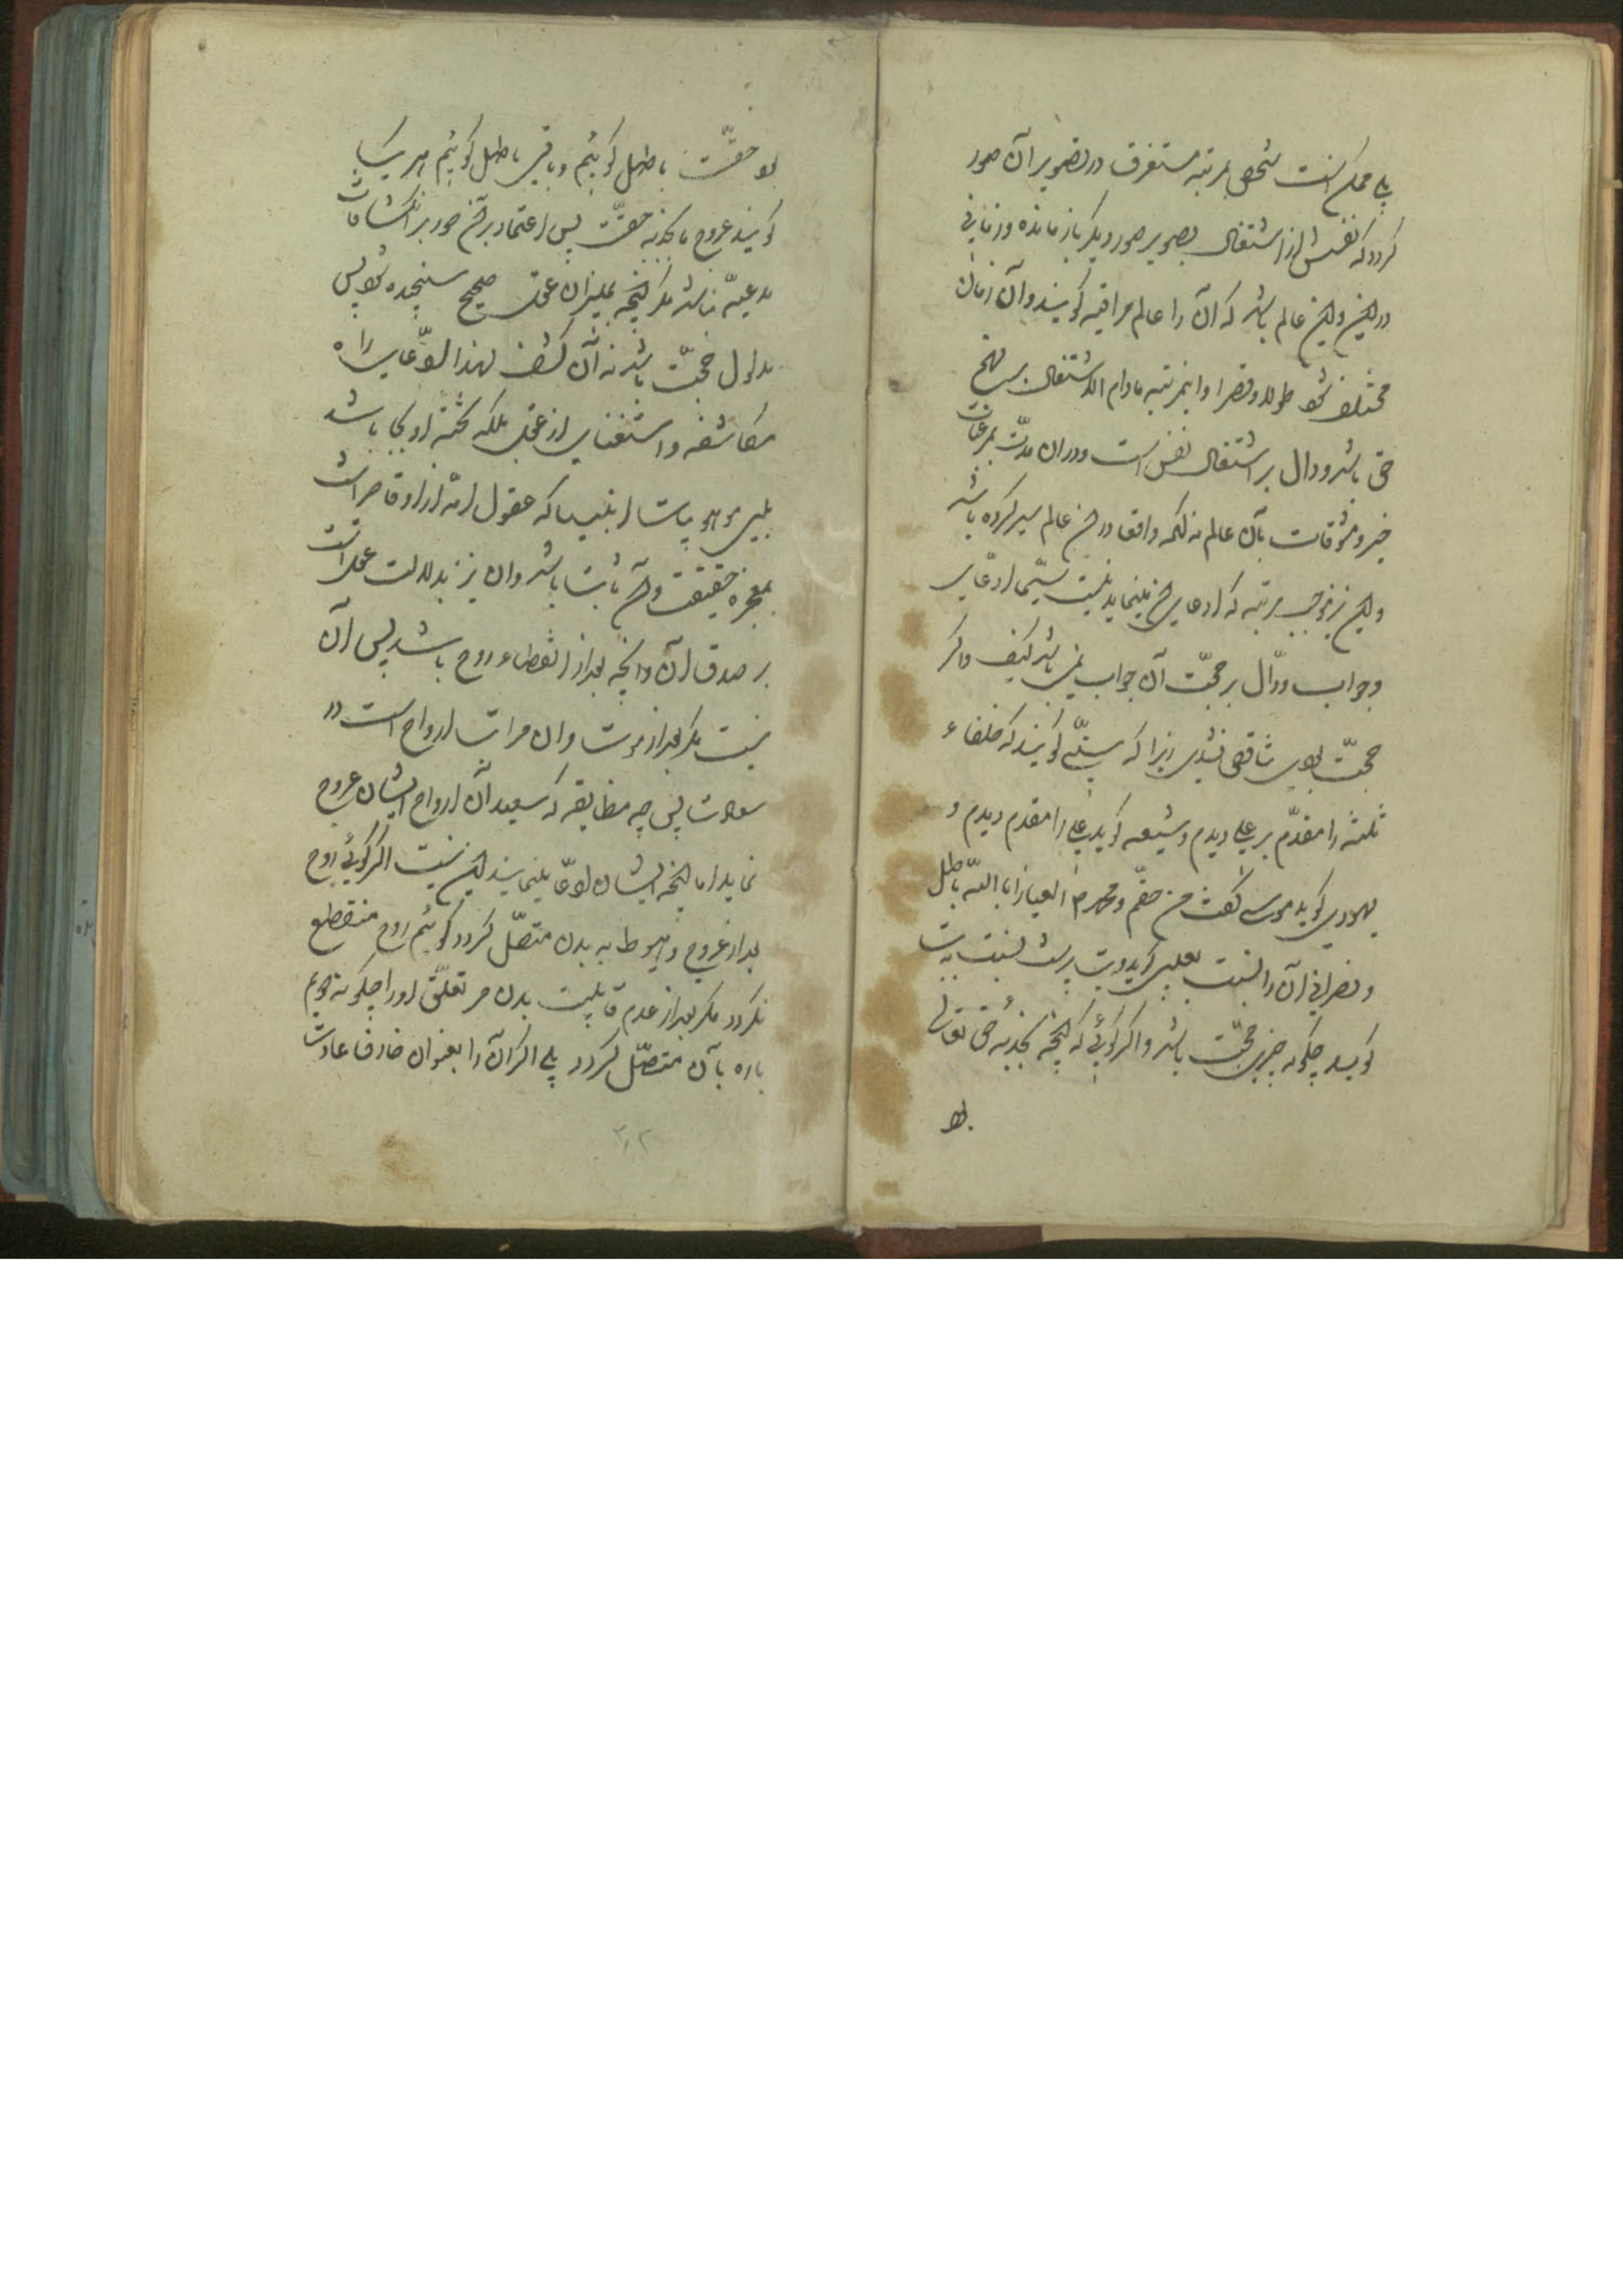 بلی ممکن است شخص بمرتبه مستغرق در تصویر آن صور
گردد که نفسش از اشتغال بصویر صور دیگر باز مانده و زمانی
در این و این عالم باشد که آن را عالم مراقبه گویند و آن زمان
مختلف شود طولا و قصرا و اینمرتبه مادام الاشتغال بر نهج
حق باشد و دال بر اشتغال نفس است و در آن مدت بمرغبات
خیر و مشوقات بآن عالم نه آنکه واقعا در آن عالم سیر کرده باشد
و این نیز بموجب مرتبه که ادعای آن مینماید نیست سیما ادعای
وجواب و دال بر حجت آن جواب نمی باشد کیف و اگر
حجت بودی تناقض نشدی زیرا که سنی گویند که خلفاء
ثلثه را مقدم بر علی دیدم و شیعه گوید علی را مقدم دیدم و
یهودی گوید موسی گفت من حقم و محمد ص العیاذ بالله باطل
و نصرانی آن را نسبت بعیسی گوید و بت پرست نسبت به بت
گوید چگونه چنین حجت باشد و اگر گوئی که آنچه بجذبه حق تعالی
بود
بود حقست باطل گوئیم و باقی باطل گوئیم هر یک
گویند عروج ما بجذبه حقست پس اعتماد بر آن صور بر انکشافات
مدعیه نباشد مگر آنچه بمیزان عقل صحیح سنجیده شود پس
مدلول حجت باشد نه آن کشف لهذا ادعای راه
مکاشفه و استغنای از عقل بلکه تخته او بجا باشد
بلی موهوبات انبیا که عقول امة از او قاصر است
بمعجزه حقیقت آن ثابت باشد و آن نیز بدلالت عقل است
بر صدق آن و آنچه بعد از انقطاع روح باشد پس آن
نیست مگر بعد از موت و آن مراتب ارواح است در
سعادت پس چه مضایقه که سعید آن ارواح ایشان عروج
نماید اما آنچه ایشان ادعا مینمایند این نیست اگر گوئی روح
بعد از عروج و هبوط به بدن متصل گردد گوئیم روح منقطع
نگردد مگر بعد از عدم قابلیت بدن مر تعلق او را چگونه دویم
باره بآن متصل گردد بلی اگر آن را بعنوان خارق عادت